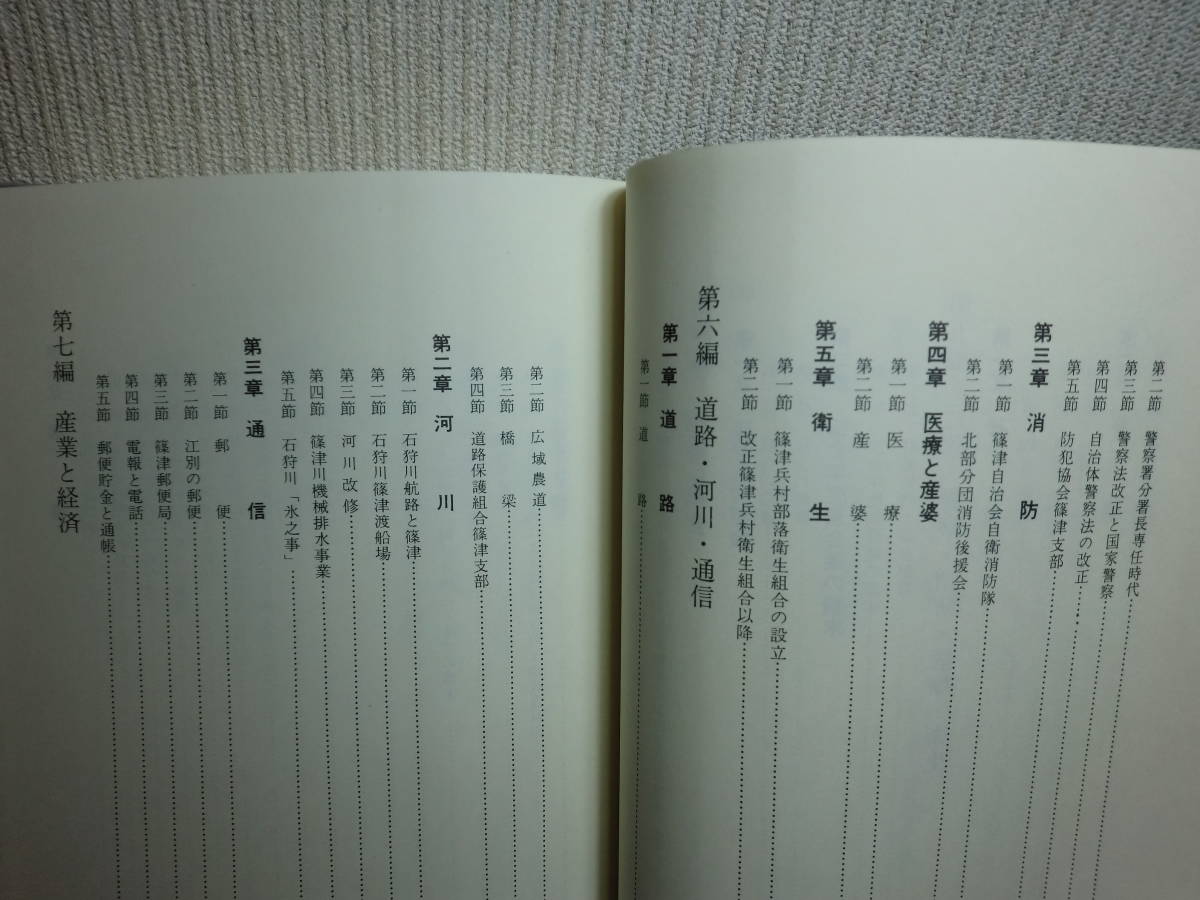 第二節 警察署分署長専任時代
第三節 警察法改正と国家警察
第四節 自治体警察法の改正
第五節 防犯協会篠津支部
第三章 消防
第一節 篠津自治会自衛消防隊
第二節 北部分団消防後援会
第四章 医療と産婆
第一節 医療
第二節 産婆
第五章 衛生
第一節 篠津兵村部落衛生組合の設立
第二節 改正篠津兵村衛生組合以降
第六編 道路・河川・通信
第一章 道路
第一節 道路
第二節 広域農道
第三節 橋梁
第四節 道路保護組合篠津支部
第二章 河川
第一節 石狩川航路と篠津
第二節 石狩川篠津渡船場
第三節 河川改修
第四節 篠津川機械排水事業
第五節 石狩川「氷之事」
第三章 通信
第一節 郵便
第二節 江別の郵便
第三節 篠津郵便局
第四節 電報と電話
第五節 郵便貯金と通帳
第七編 産業と経済